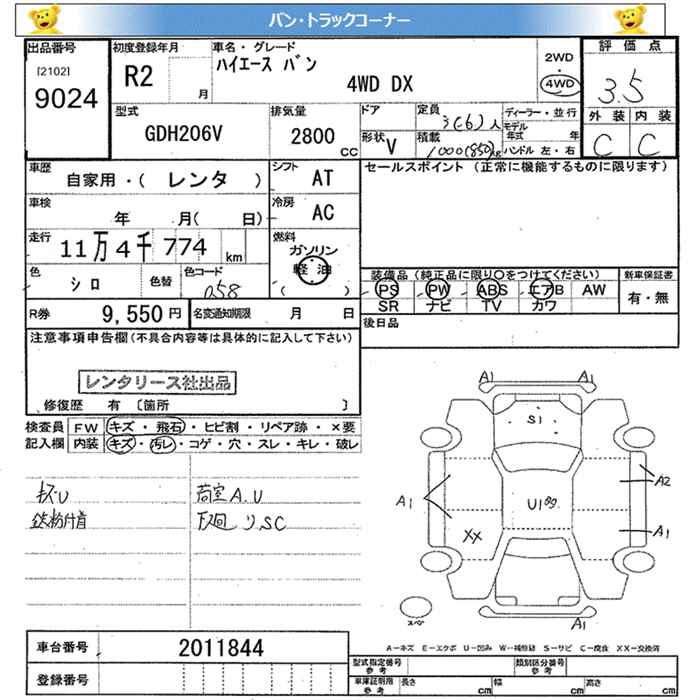 バン・トラックコーナー
出品番号
[2102]
9024
初度登録年月
R2
月
車名・グレード
ハイエース バン
4WD DX
2WD
・
4WD
評価点
3.5
外装 内装
C C
型式
GDH206V
排気量
2800
CC
ドア
形状
V
定員
3(6)人
積載
1000(850)kg
ディーラー・並行
モデル年式 年
ハンドル 左・右
車歴
自家用・( レンタ )
シフト
AT
車検
年 月( 日)
冷房
AC
走行
11万4千774
km
燃料
ガソリン
軽油
( )
色
シロ
色替
色コード
058
R券
9,550円
名変通知期限
月 日
セールスポイント (正常に機能するものに限ります)
装備品 (純正品に限り○をつけてください)
PS PW ABS エアB AW
SR ナビ TV カワ
新車保証書
有・無
後日品
注意事項申告欄(不具合内容等は具体的に記入して下さい)
レンタリース社出品
修復歴 有 〔箇所 〕
検査員記入欄
FW キズ・飛石・ヒビ割・リペア跡・×要
内装 キズ・汚レ・コゲ・穴・スレ・キレ・破レ
キズU
鉄粉付着
荷室A.U
下回リSC
A1
A1
S1
A1
U1
XX
A2
A1
A1
スペア
A=キズ E=エクボ U=凹み W=補修跡 S=サビ C=腐食 XX=交換済
車台番号
2011844
登録番号
型式指定番号
参考
類別区分番号
参考
車庫証明用
参考
長さ cm 幅 cm 高さ cm